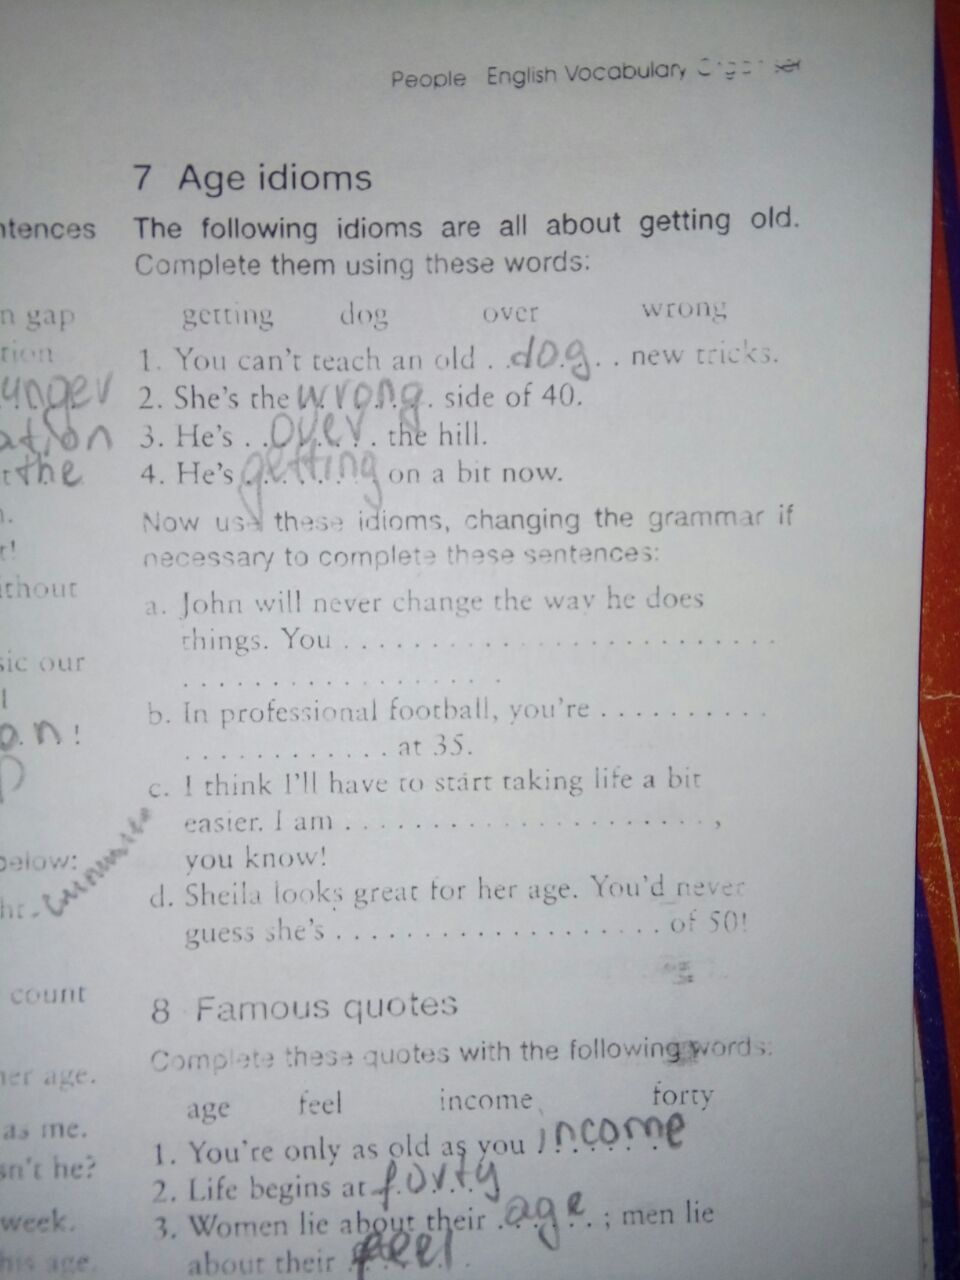 People English Vocabulary
7 Age idioms
ntences
The following idioms are all about getting old.
Complete them using these words:
n gap
getting dog over wrong
tion
1. You can't teach an old . .dog. . new tricks.
unger
2. She's the wrong. side of 40.
ation
3. He's . .over. . the hill.
the
4. He's getting on a bit now.
Now use these idioms, changing the grammar if
necessary to complete these sentences:
ithout
a. John will never change the way he does
things. You . . . . . . . . . . . . . . . . . . . . . . . . .
. . . . . . . . . . . . . . . . . .
sic our
b. In professional football, you're . . . . . . . . . .
. . . . . . . . . . . . at 35.
on!
c. I think I'll have to start taking life a bit
easier. I am . . . . . . . . . . . . . . . . . . . . . ,
you know!
below:
d. Sheila looks great for her age. You'd never
guess she's . . . . . . . . . . . . . . . . . . . of 50!
count
8 Famous quotes
Complete these quotes with the following words:
her age.
age feel income forty
as me.
1. You're only as old as you income
sn't he?
2. Life begins at forty
week.
3. Women lie about their . age . . ; men lie
his age.
about their feel.